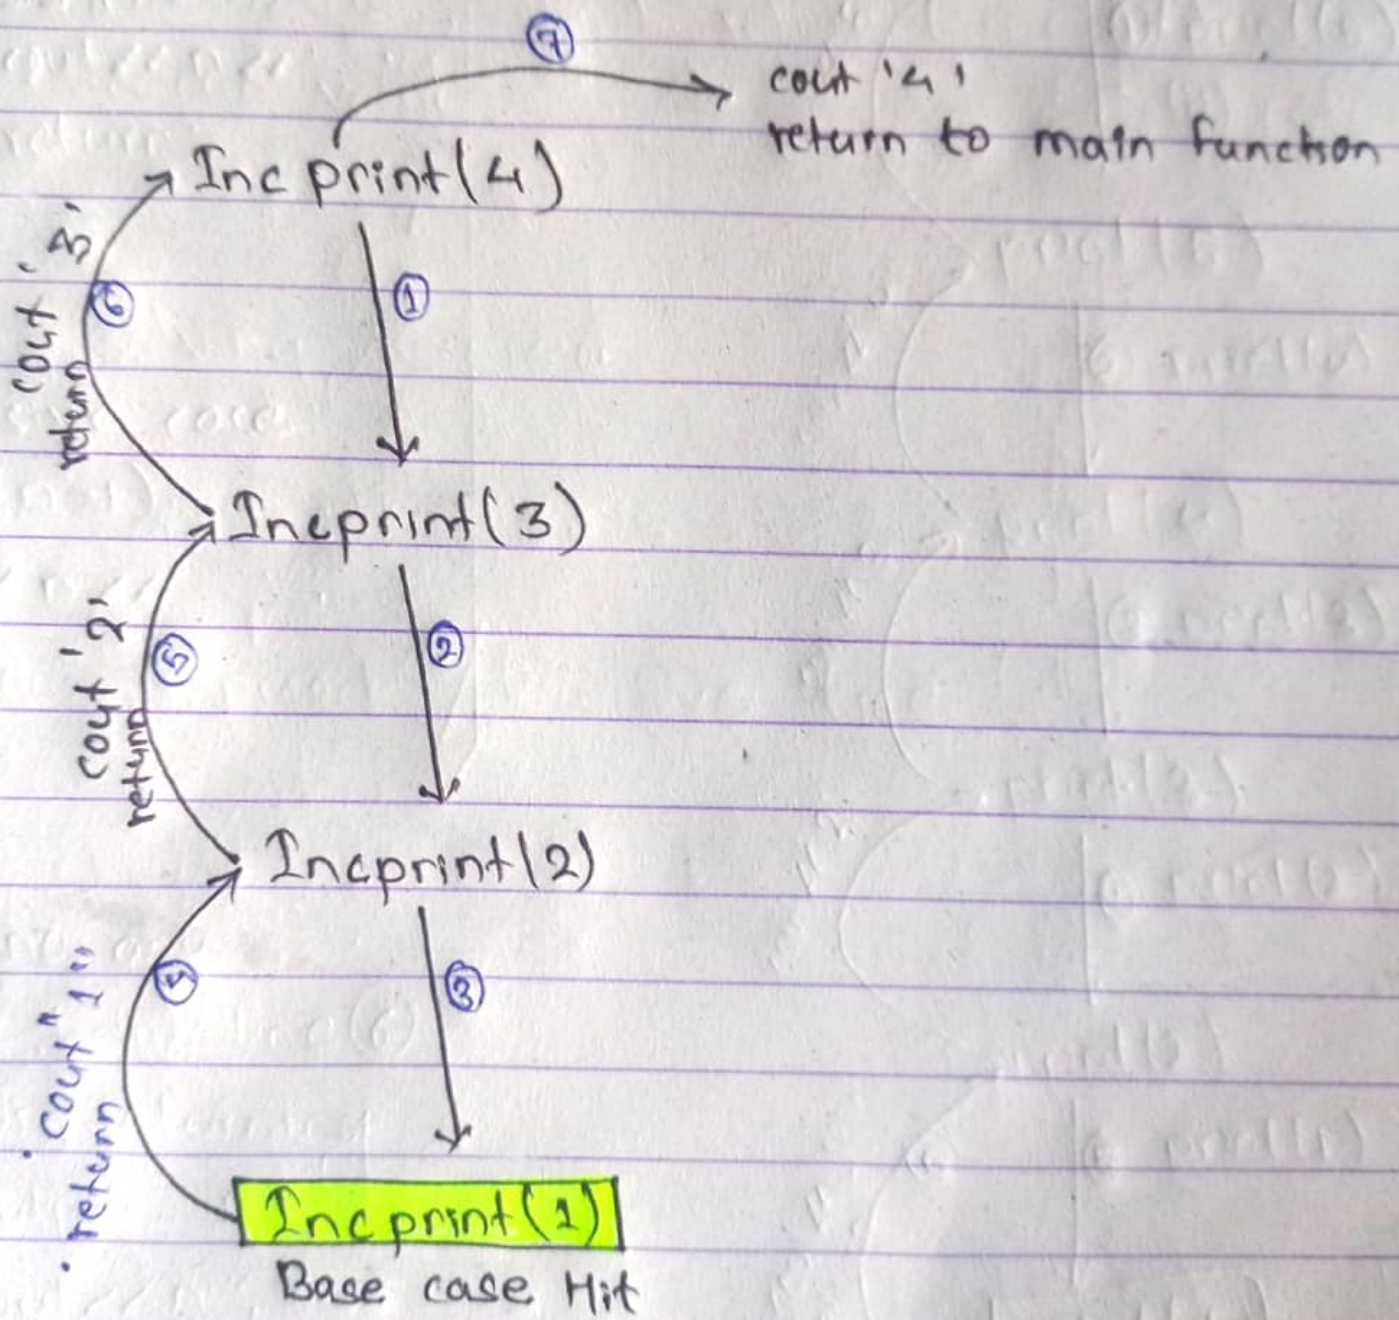 7
cout '4'
return to main function
Inc print(4)
cout '3'
return
6
1
Incprint(3)
cout '2'
return
5
2
Incprint(2)
cout "1"
return
3
Inc print(1)
Base case Hit